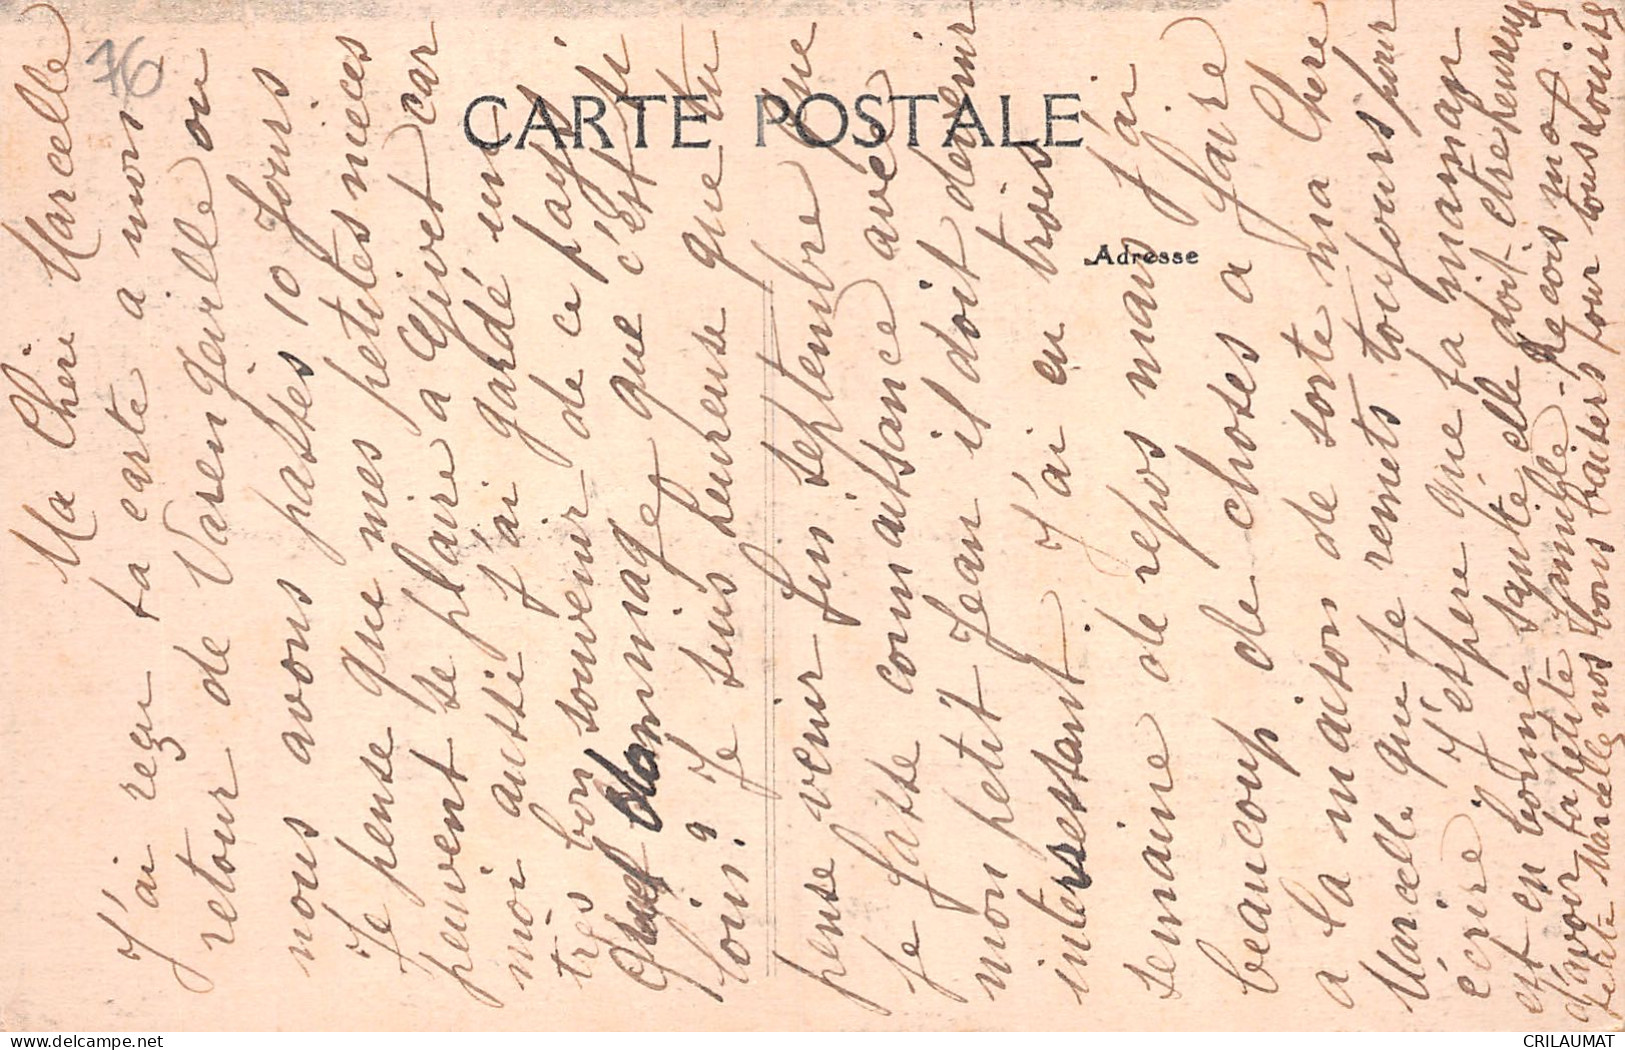 76
CARTE POSTALE
Adresse
Ma Chère Marcelle
J'ai reçu ta carte a mon
retour de Varengeville ou
nous avons passés 10 jours
Je pense que mes petites nieces
peuvent se plaire a Givet car
moi aussi j'ai gardé un
tres bon souvenir de ce pays si
Quel Dommage que c'est si
loin ? Je suis heureuse que tu
pense venir fin septembre que
je fasse connaissance avec
mon petit Jean il doit devenir
interessant J'ai eu trois
semaine de repos mais j'ai
beaucoup de choses a faire
a la maison de sorte ma Chere
Marcelle que je remets toujours pour
écrire J'espere que ta maman
est en bonne santé elle doit etre heureuse
d'avoir ta petite famille - Recois ma
petite Marcelle nos bons baisers pour tous Louise
CRILAUMAT